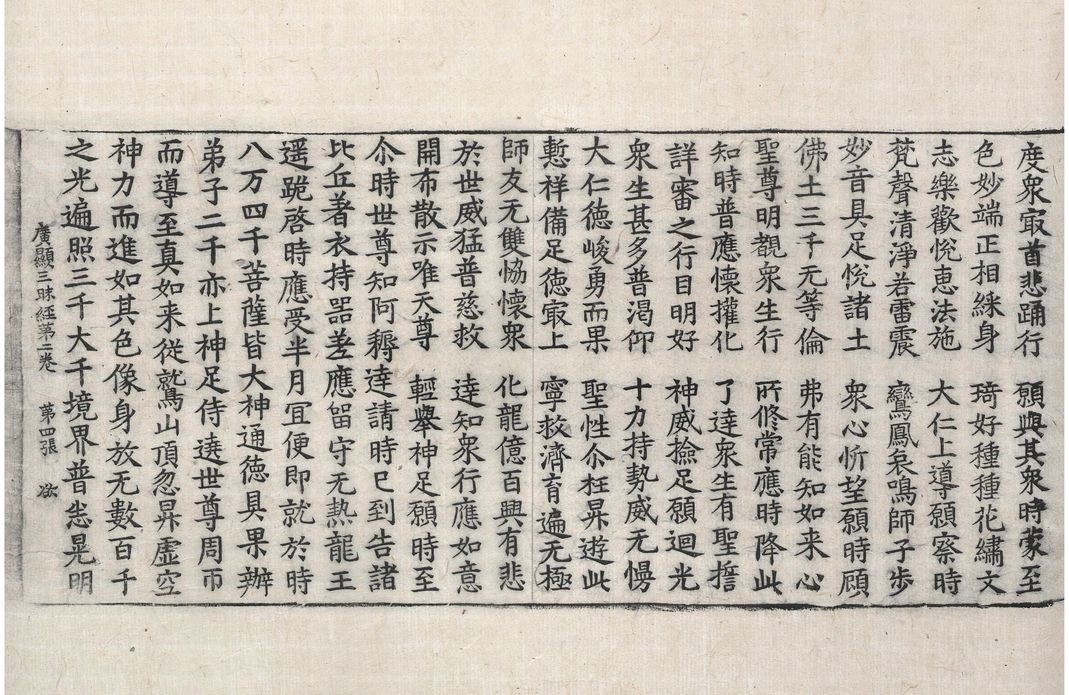 度衆㝡首悲踊行　願與其衆時蒙至
色妙端正相綵身　琦好種種花繡文
志樂歡悅恵法施　大仁上導願察時
梵聲清淨若雷震　鸞鳳哀鳴師子步
妙音具足悅諸土　衆心忻望願時顧
佛土三千无等倫　弗有能知如来心
聖尊明覩衆生行　所修常應時降此
知時普應懷權化　了達衆生有聖誓
詳審之行目明好　神威撿足願迴光
衆生甚多普渴仰　十力持勢威无慢
大仁徳峻勇而果　聖性尒枉昇遊此
慙祥備足徳㝡上　寧救濟育遍无極
師友无雙恊懷衆　化龍億百興有悲
於世威猛普慈救　達知衆行應如意
開布散示唯天尊　輕舉神足願時至
尒時世尊知阿耨達請時已到告諸
比丘著衣持器差應留守无熱龍王
遥跪啓時應受半月宜便即就於時
八万四千菩薩皆大神通徳具果辦
弟子二千亦上神足侍遶世尊周帀
而導至真如来從鷲山頂忽昇虚空
神力而進如其色像身放无數百千
之光遍照三千大千境界普悉晃明
廣顯三昧経第二卷　第四張　欲